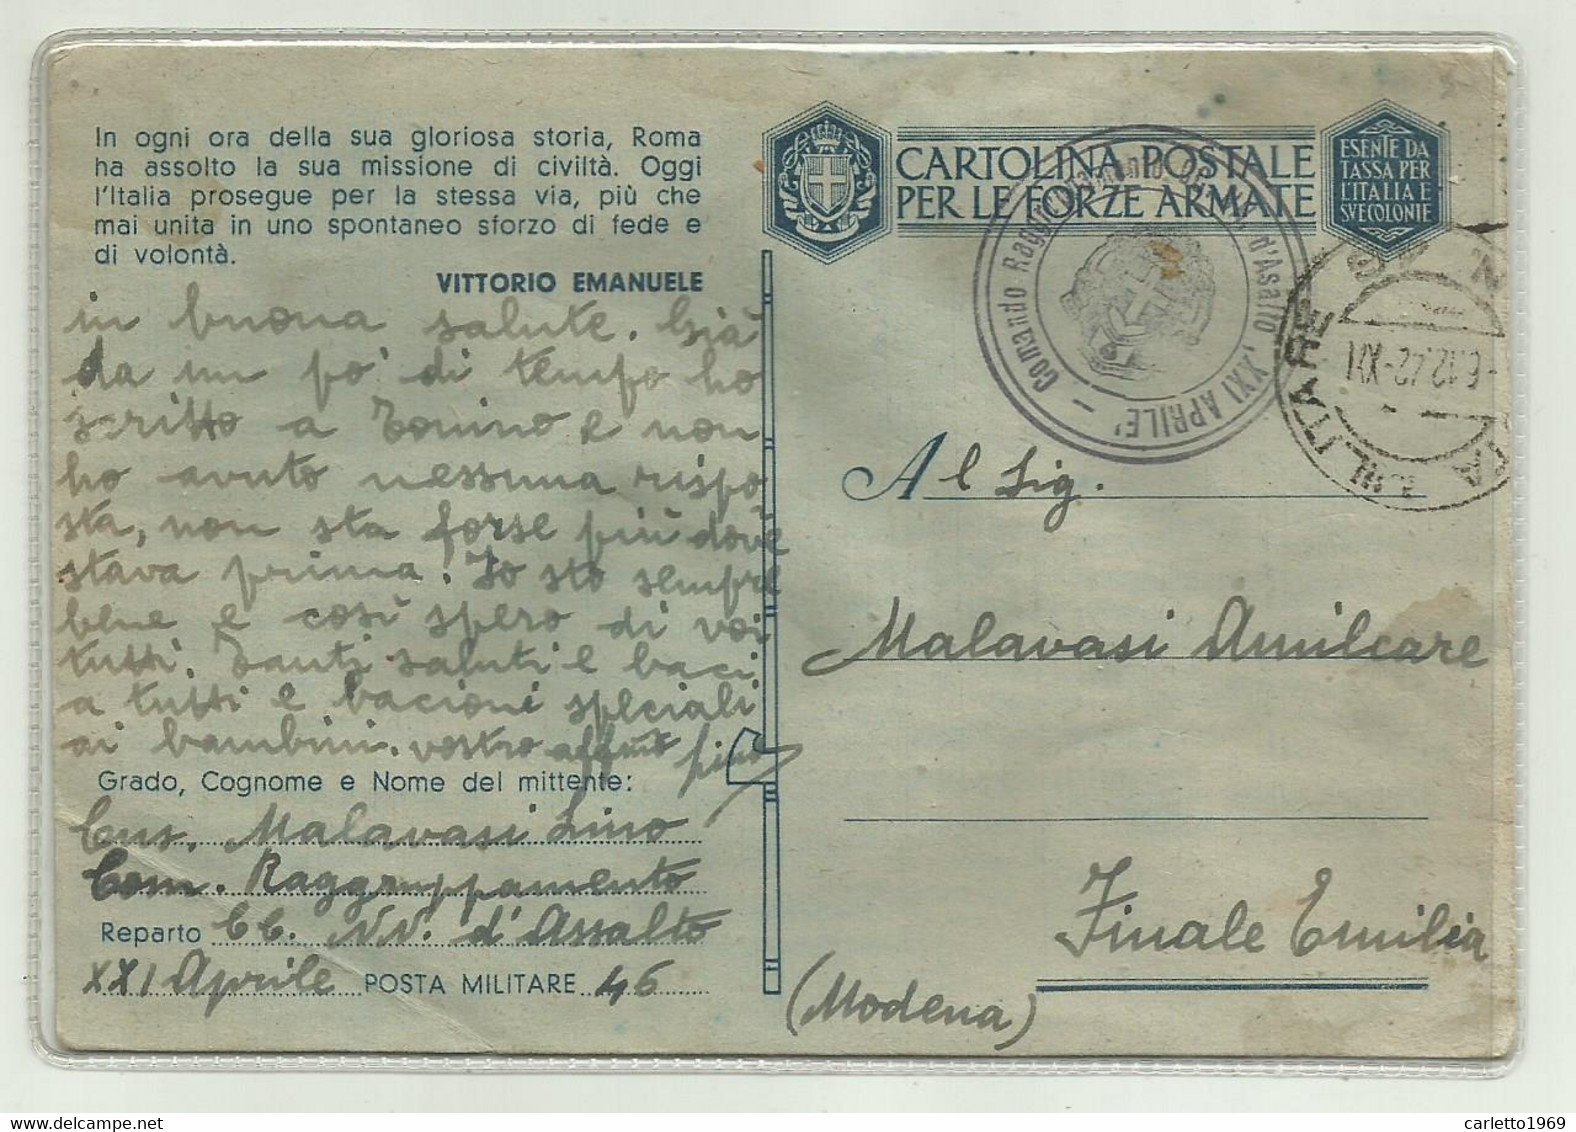 In ogni ora della sua gloriosa storia, Roma
ha assolto la sua missione di civiltà. Oggi
l'Italia prosegue per la stessa via, più che
mai unita in uno spontaneo sforzo di fede e
di volontà.
VITTORIO EMANUELE
in buona salute. Già
da un po' di tempo ho
scritto a Tonino e non
ho avuto nessuna rispo
sta, non sta forse più dov'è
stava prima. Io sto sempre
bene e così spero di voi
tutti. Tanti saluti e baci
a tutti e bacioni speciali
ai bambini. vostro affmo
Grado, Cognome e Nome del mittente:
Cns. Malavasi Lino
Com. Raggruppamento
Reparto CC. NN. d'Assalto
XXI Aprile POSTA MILITARE 46
CARTOLINA POSTALE
PER LE FORZE ARMATE
ESENTE DA
TASSA PER
L'ITALIA E
SVE COLONIE
Comando d'Assalto "XXI APRILE"
MILITARE
6.12.42-XXI
Al Sig.
Malavasi Amilcare
Finale Emilia
(Modena)
carletto1969